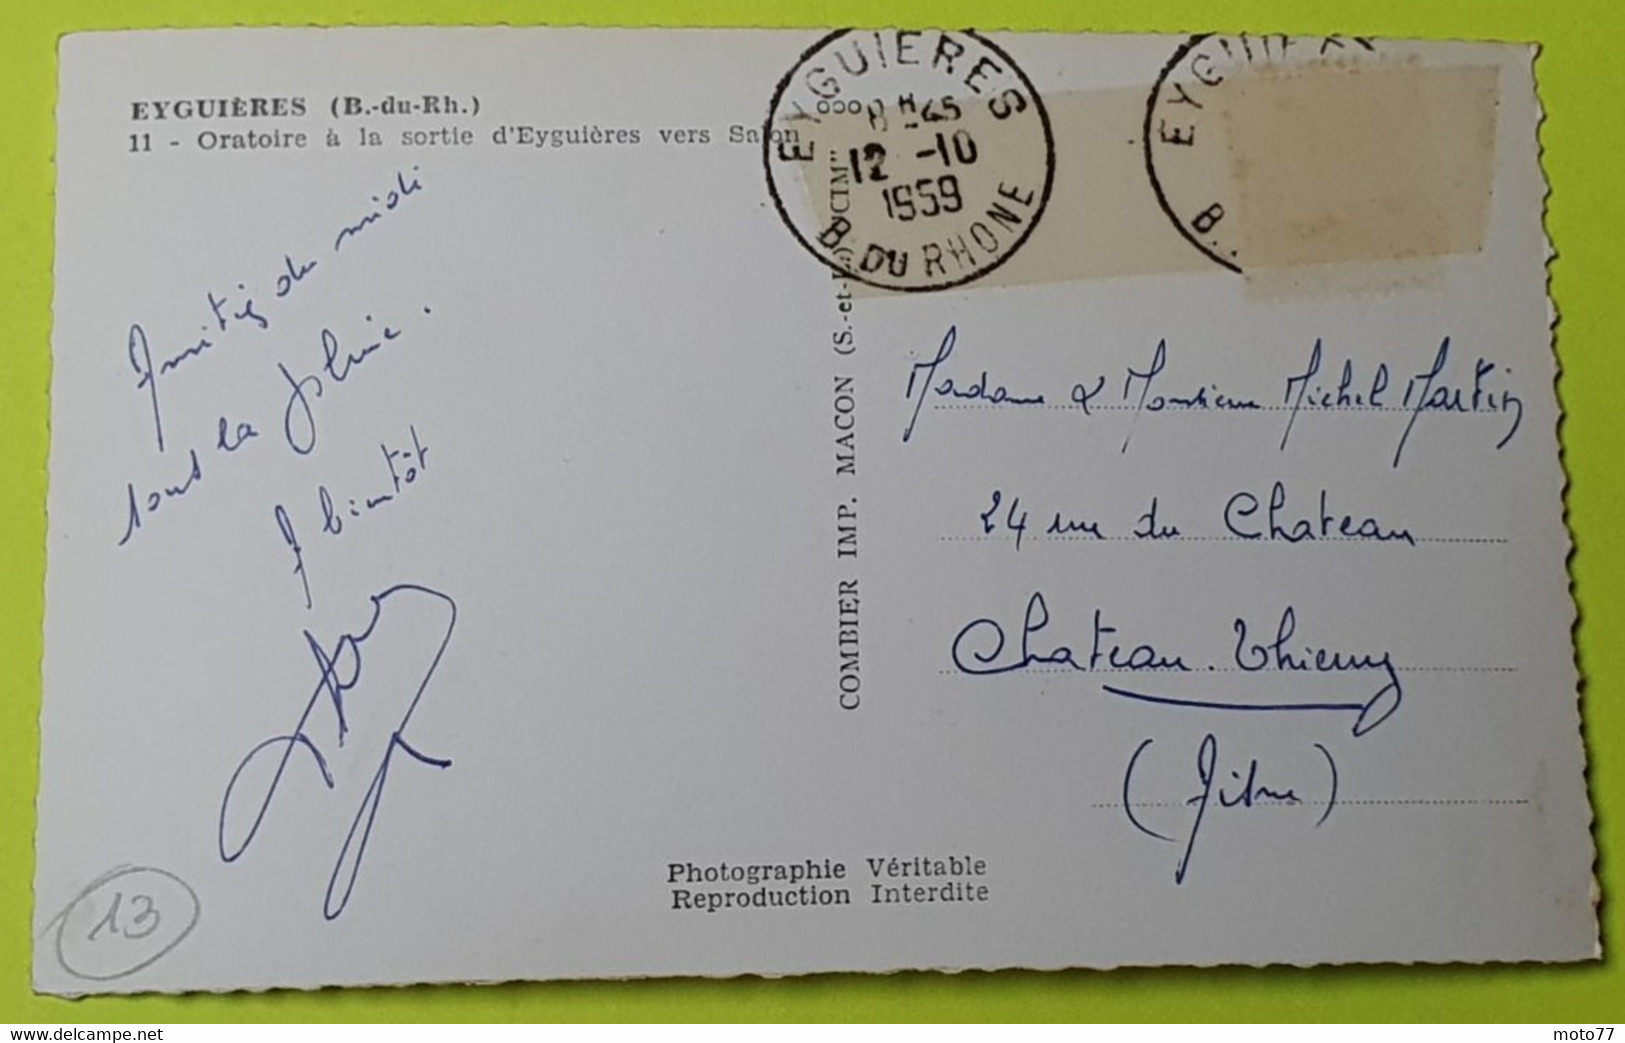 EYGUIÈRES (B.-du-Rh.)
11 - Oratoire à la sortie d'Eyguières vers Salon
Amitiés du midi
sous la pluie.
A bientôt
EYGUIERES
8H45
12 -10
1959
B. DU RHONE
EYGUIER
B.
COMBIER IMP. MACON (S.-et-L.) "CIM"
Madame & Monsieur Michel Martin
24 rue du Chateau
Chateau-Thierry
(Aisne)
Photographie Véritable
Reproduction Interdite
13
moto77